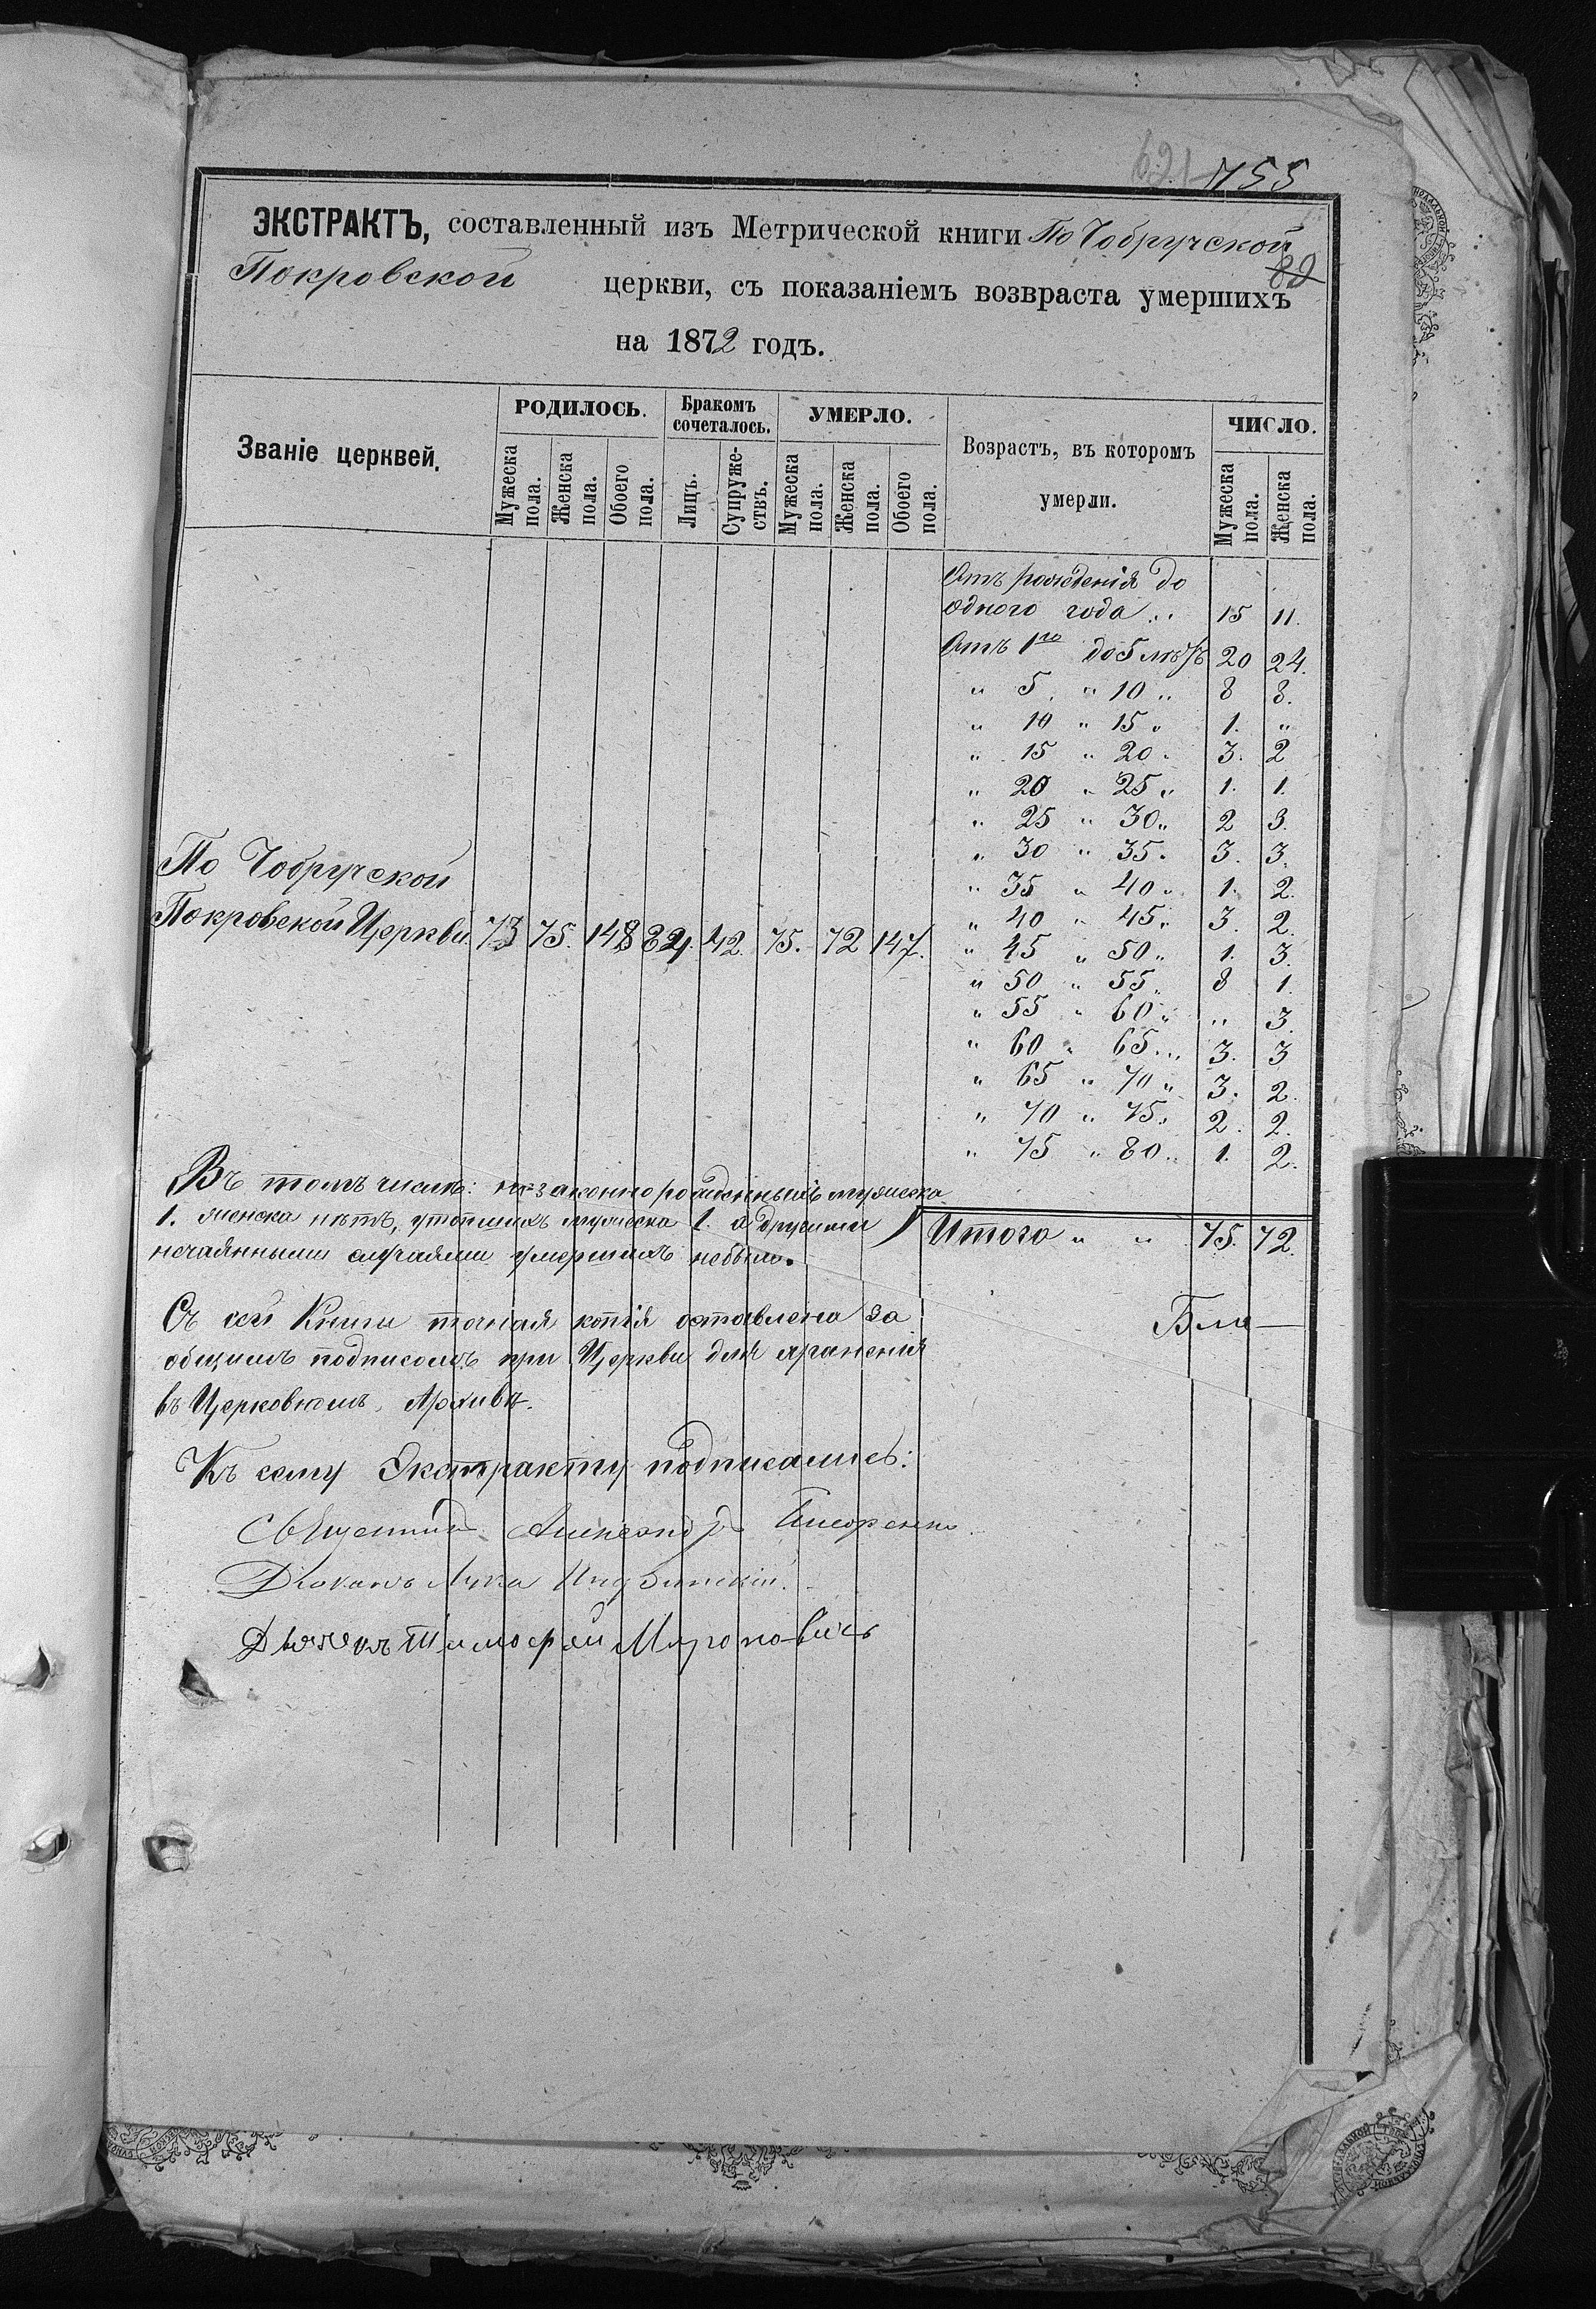 621 755
ЭКСТРАКТЪ, составленный изъ Метрической книги По Чобручской
89
Покровской церкви, съ показаніемъ возвраста умершихъ
на 1872 годъ.
Званіе церквей.
РОДИЛОСЬ.
Мужеска пола.
Женска пола.
Обоего пола.
Бракомъ сочеталось.
Лицъ.
Супружествъ.
УМЕРЛО.
Мужеска пола.
Женска пола.
Обоего пола.
Возрастъ, въ которомъ
умерли.
ЧИСЛО.
Мужеска пола.
Женска пола.
Отъ рожденія до
одного года .. 15 11.
Отъ 1го до 5 лѣтъ 20 24.
" 5 " 10 " 8 8.
" 10 " 15 " 1. "
" 15 " 20 " 3. 2
" 20 " 25 " 1. 1.
" 25 " 30 " 2 3.
" 30 " 35 " 3. 3.
" 35 " 40 " 1. 2.
" 40 " 45 " 3. 2.
" 45 " 50 " 1. 3.
" 50 " 55 " 8 1.
" 55 " 60 " " 3.
" 60 " 65 " 3. 3
" 65 " 70 " 3. 2.
" 70 " 75 " 2. 2.
" 75 " 80 " 1. 2.
По Чобручской
Покровской Церкви 73 75. 148 84. 42. 75. 72 147.
Итого " " 75. 72.
Въ томъ числѣ: незаконнорожденныхъ мужеска
1. женска нѣтъ, утопшихъ мужеска 1. а другими
нечаянными случаями умершихъ небыло.
Съ сей Книги точная копія оставлена за
общимъ подписомъ при Церкви для храненія
въ Церковномъ Архивѣ.
Бла—
Къ сему Экстракту подписались:
Священникъ Александръ
Діаконъ Лука
Дьячекъ Тимофей Мироновичь